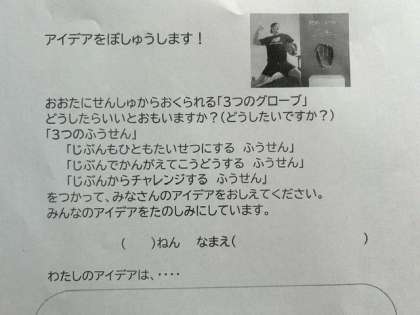 アイデアをぼしゅうします！
おおたにせんしゅからおくられる「３つのグローブ」
どうしたらいいとおもいますか？(どうしたいですか？)
「３つのふうせん」
「じぶんもひともたいせつにする　ふうせん」
「じぶんでかんがえてこうどうする　ふうせん」
「じぶんからチャレンジする　ふうせん」
をつかって、みなさんのアイデアをおしえてください。
みんなのアイデアをたのしみにしています。
（　　）ねん　なまえ（　　　　　　　　　　）
わたしのアイデアは、・・・・